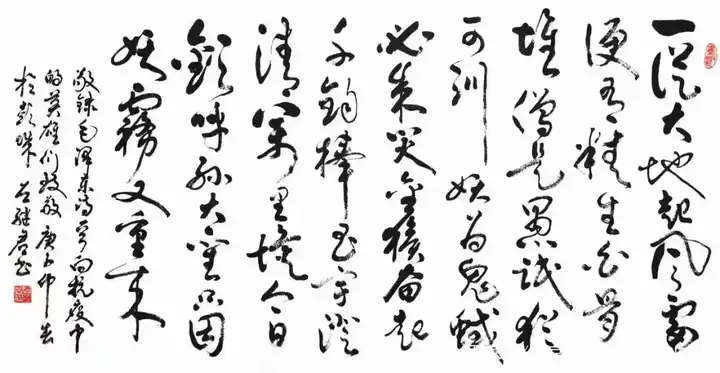 一從大地起风雷
便有精生白骨
堆僧是愚氓犹
可训妖为鬼蜮
必成灾金猴奋起
千钧棒玉宇澄
清万里埃今日
欢呼孙大圣只因
妖霧又重来
敬録毛泽东诗向抗疫中
的英雄们致敬庚子仲春
於彭城继君书